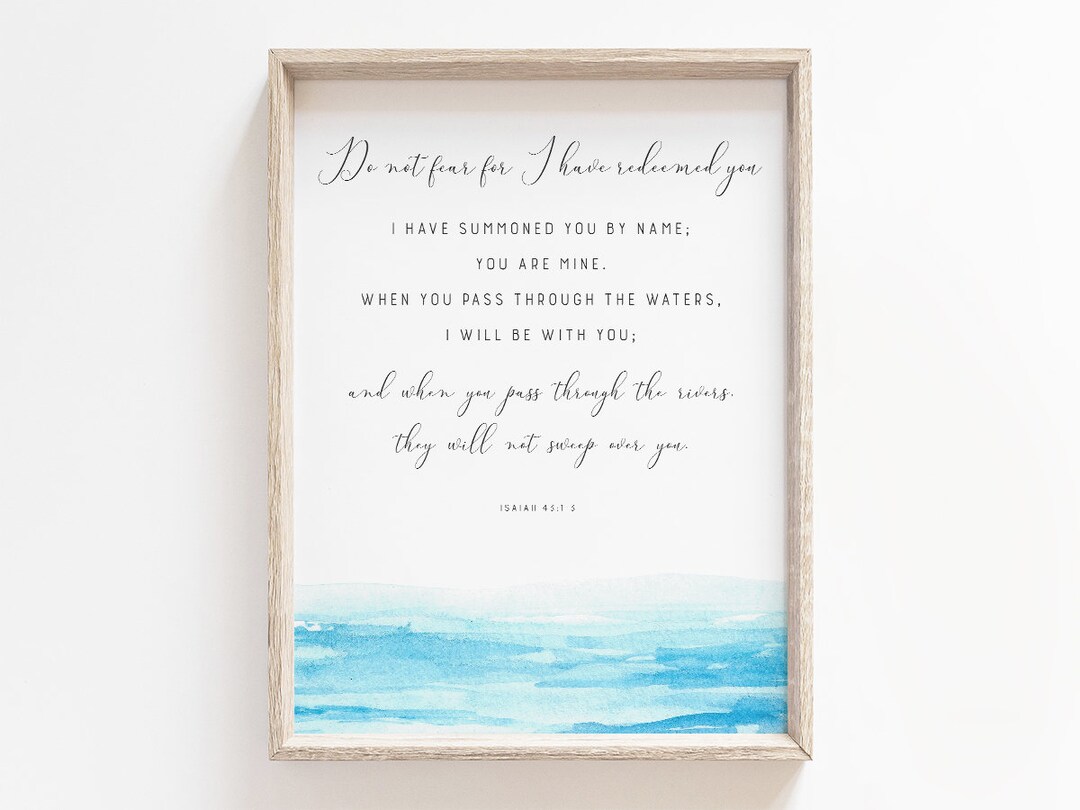 Do not fear for I have redeemed you
I HAVE SUMMONED YOU BY NAME;
YOU ARE MINE.
WHEN YOU PASS THROUGH THE WATERS,
I WILL BE WITH YOU;
and when you pass through the rivers.
they will not sweep over you.
ISAIAH 43:1-3